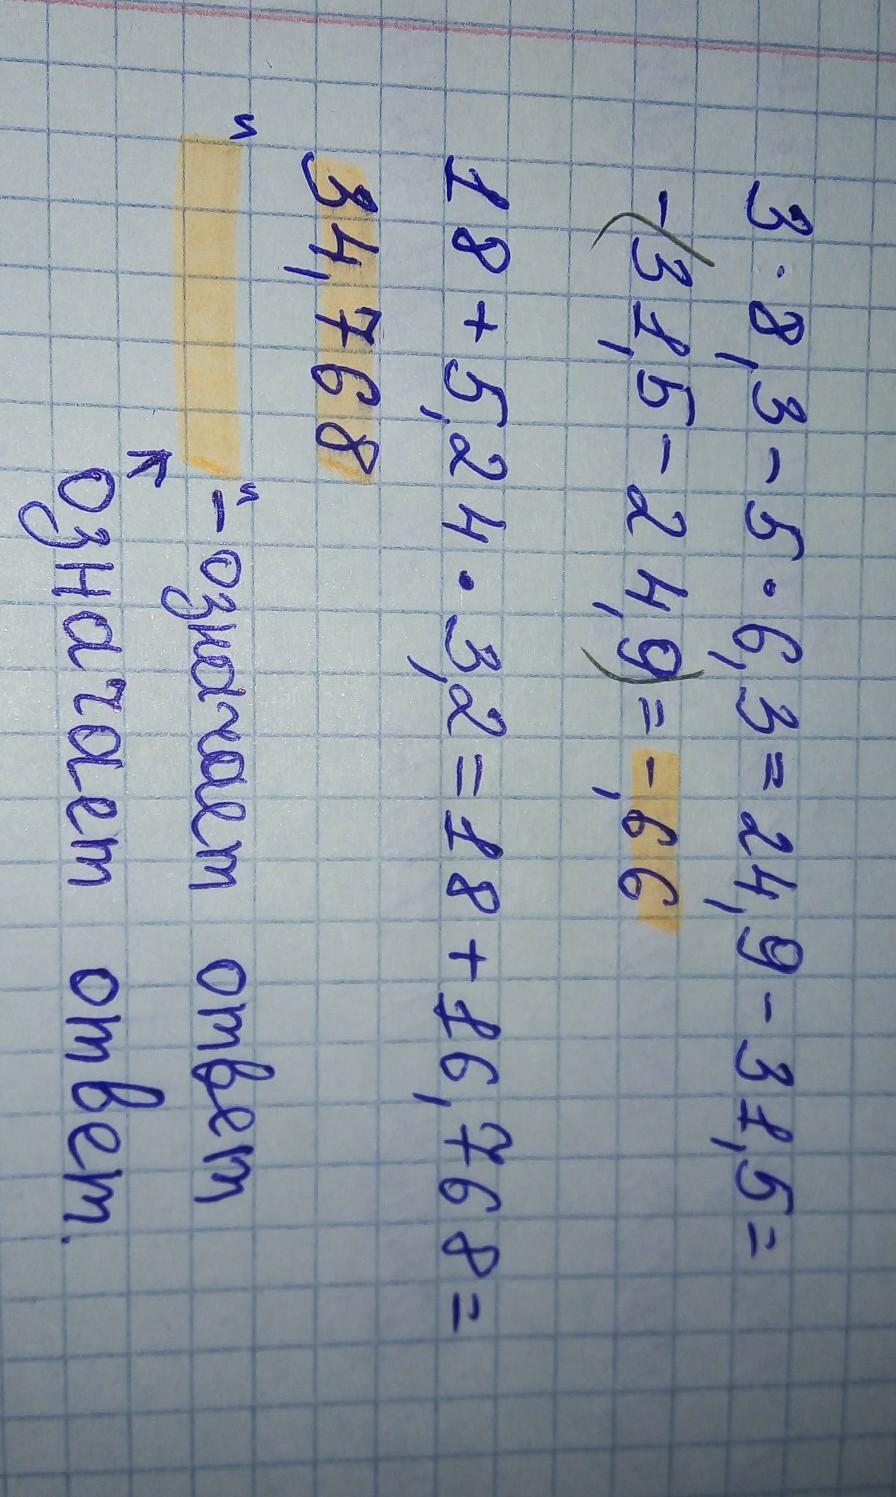 3·8,3-5·6,3=24,9-31,5=
-(31,5-24,9)=-,66
18+5,24·3,2=18+16,768=
34,768
" " - означает ответ
означает ответ.